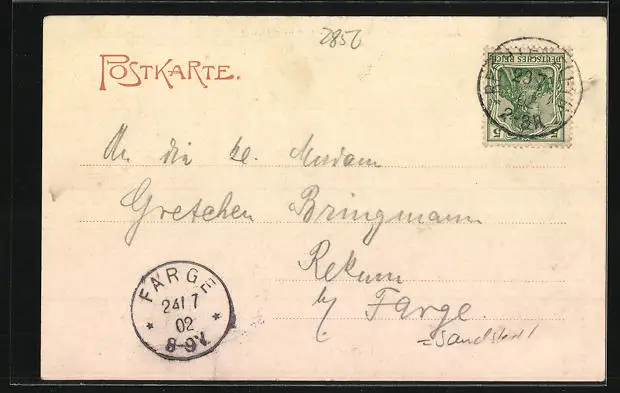 2856
POSTKARTE.
DEUTSCHES REICH
5 5
An die
Madam
Gretchen Bringmann
Rekum
by Farge.
=Sandstedt
FARGE
24/ 7
02
* *
8-9V.